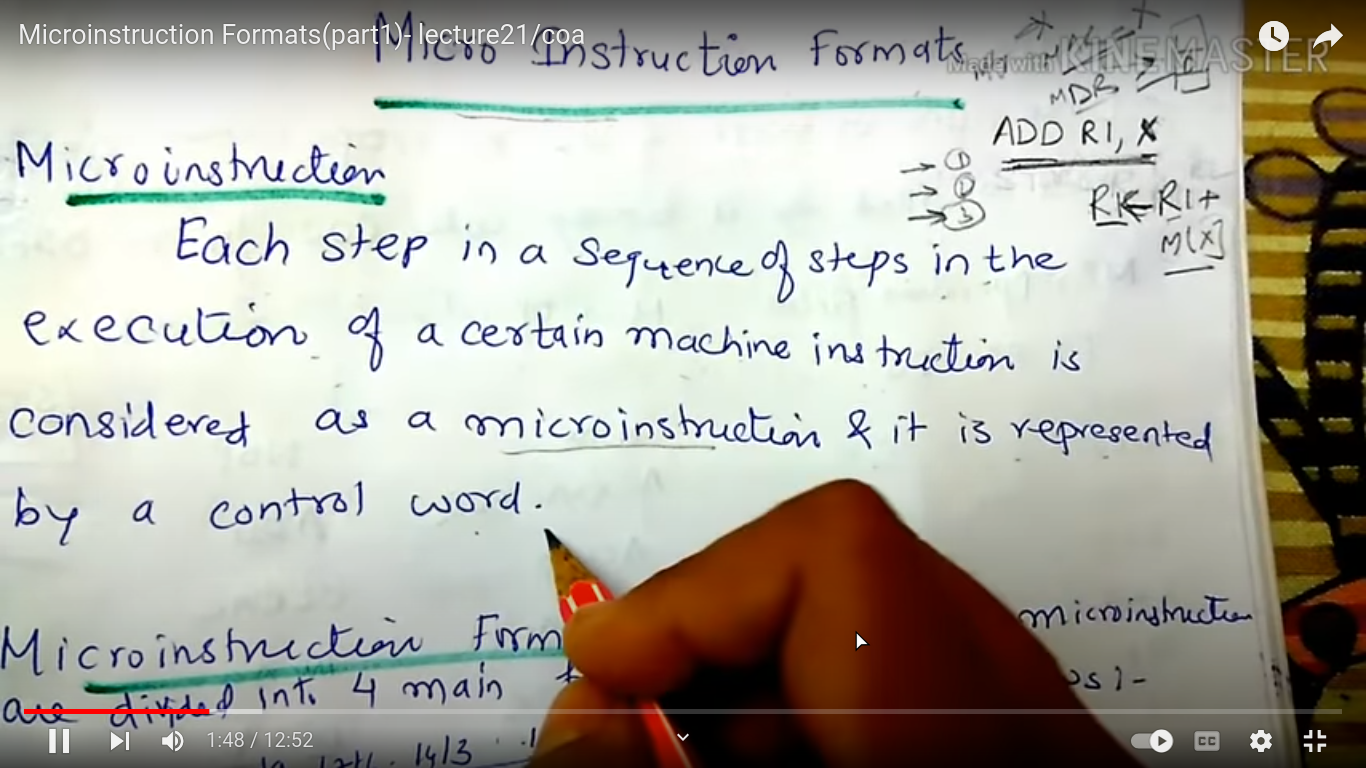 Microinstruction Formats(part1)- lecture21/coa
Micro Instruction Formats
Made with KINEMASTER
MDR
ADD R1, X
R1 ← R1 +
M[X]
→ ①
→ ②
→ ③
Microinstruction
Each step in a sequence of steps in the
execution of a certain machine instruction is
considered as a microinstruction & it is represented
by a control word.
Microinstruction Form microinstruction
are divided into 4 main
1:48 / 12:52
CC